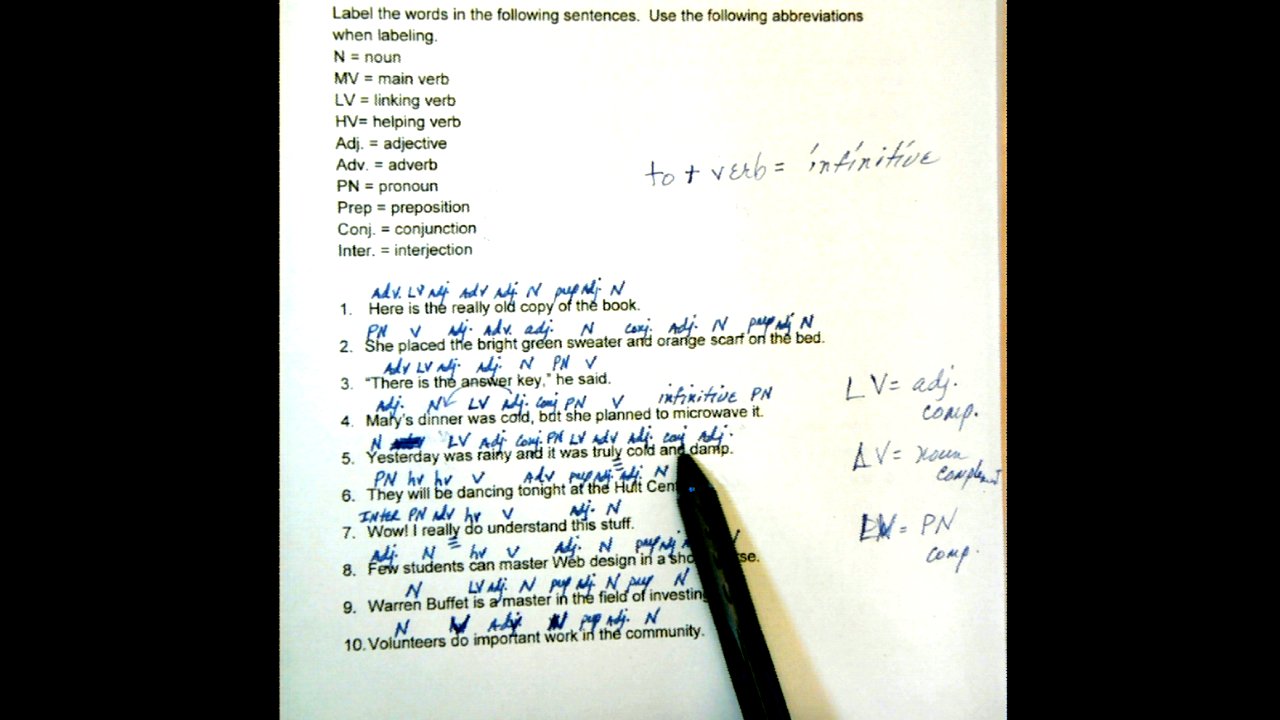 Label the words in the following sentences. Use the following abbreviations
when labeling.
N = noun
MV = main verb
LV = linking verb
HV= helping verb
Adj. = adjective
Adv. = adverb
PN = pronoun
to + verb = infinitive
Prep = preposition
Conj. = conjunction
Inter. = interjection
Adv. LV Adj. Adv Adj. N prep Adj. N
1. Here is the really old copy of the book.
PN V Adj. Adv. adj. N conj. Adj. N prep Adj N
2. She placed the bright green sweater and orange scarf on the bed.
Adv LV Adj. Adj. N PN V
3. "There is the answer key," he said.
Adj. N LV Adj. Conj PN V infinitive PN
4. Mary's dinner was cold, but she planned to microwave it.
LV= adj.
comp.
N LV Adj Conj. PN LV Adv Adj. conj Adj.
5. Yesterday was rainy and it was truly cold and damp.
LV= noun
complement
PN hv hv V Adv prep Adj. Adj. N
6. They will be dancing tonight at the Hult Cen
INTER PN Adv hv V Adj. N
7. Wow! I really do understand this stuff.
LV= PN
comp.
Adj. N hv V Adj. N prep Adj
8. Few students can master Web design in a sho se.
N LV Adj. N prep Adj N prep N
9. Warren Buffet is a master in the field of investing
N V Adj N prep Adj. N
10. Volunteers do important work in the community.